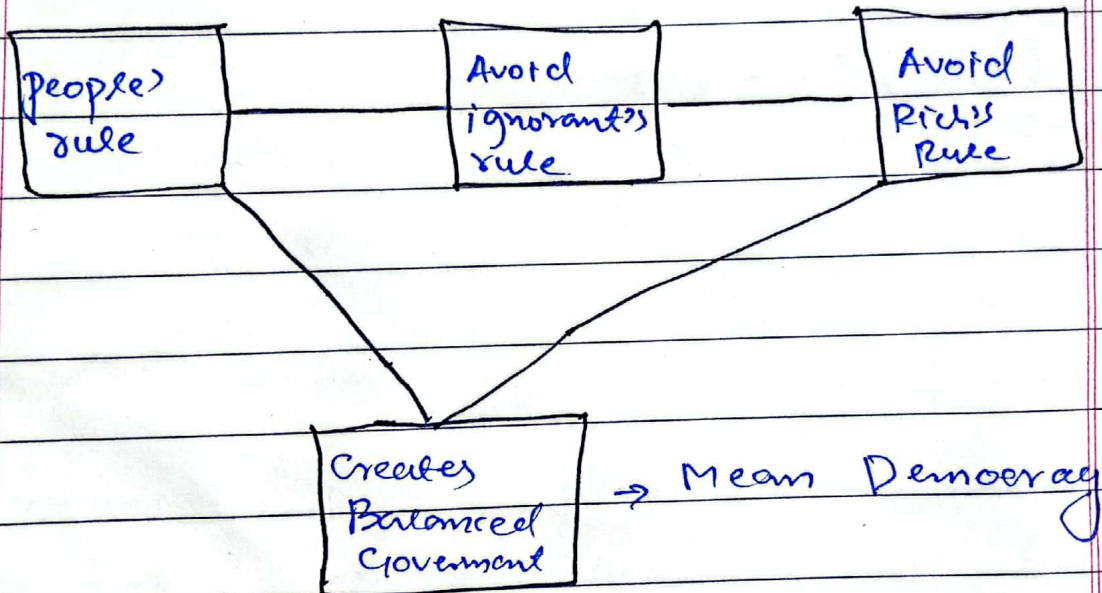 people's
rule
Avoid
ignorant's
rule
Avoid
Rich's
Rule
Creates
Balanced
Goverment
→ Mean Democracy